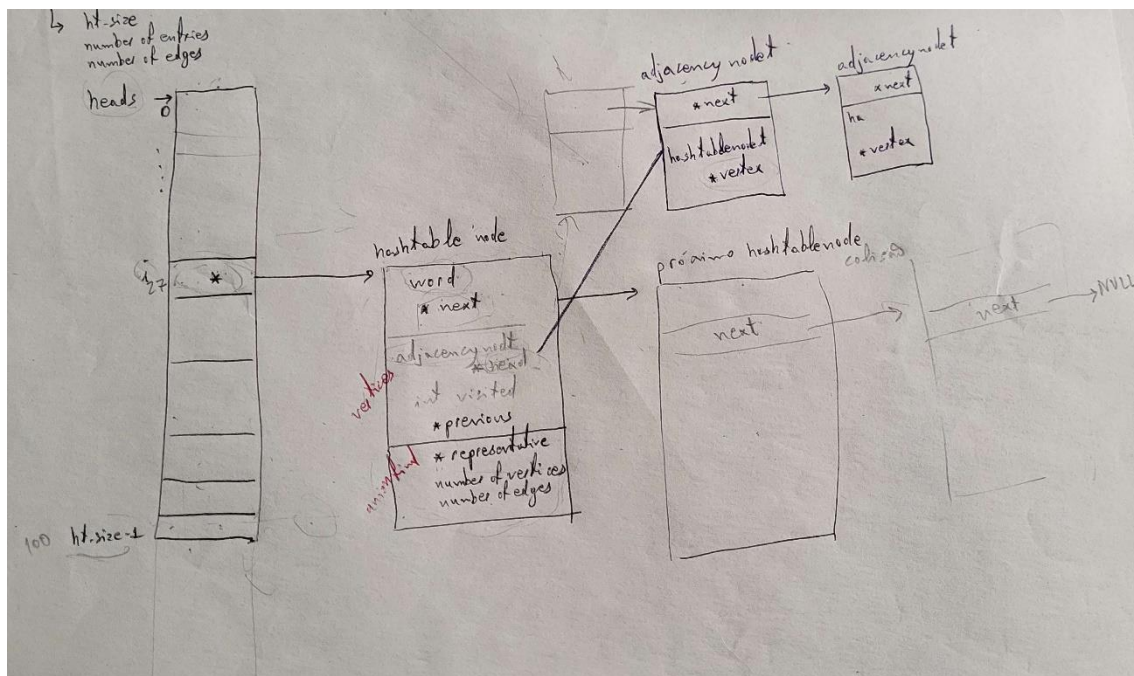 ht-size
number of entries
number of edges
heads →
0
i
27
*
100 ht-size-1
hashtable node
word
* next
adjacency nodt
* head
int visited
* previous
* representative
number of vertices
number of edges
vertices
union find
adjacency nodet
* next
hashtablenodet
* vertex
adjacencynodet
* next
ha
* vertex
próximo hashtablenode
next
colisão
next
NULL